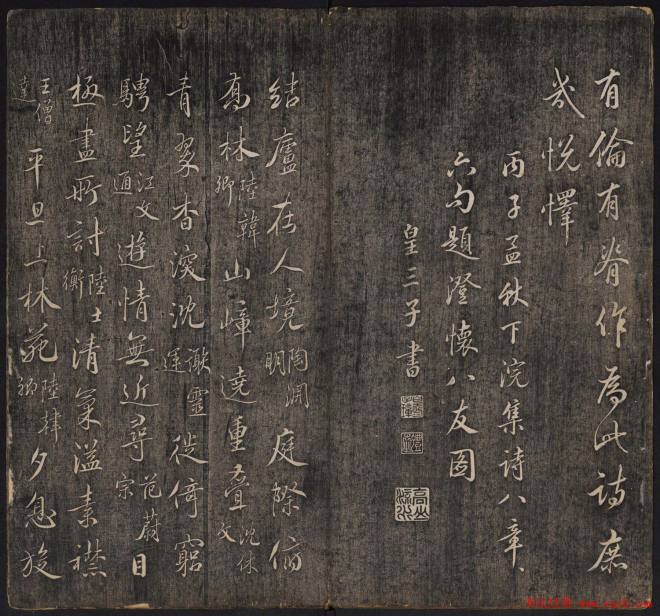 有倫有脊作為此詩庶
幾悅懌
丙子孟秋下浣集詩八章章
六句題澄懷八友圖
皇三子書
高山流水
結廬在人境陶淵明庭際俯
喬林陸韓卿山嶂遠重疊沈休文
青翠杳深沈謝靈運徙倚窮
騁望江文通遊情無近尋范蔚宗目
極盡所討陸士衡清氣溢素襟
王僧達平旦上林苑陸韓卿夕息旋